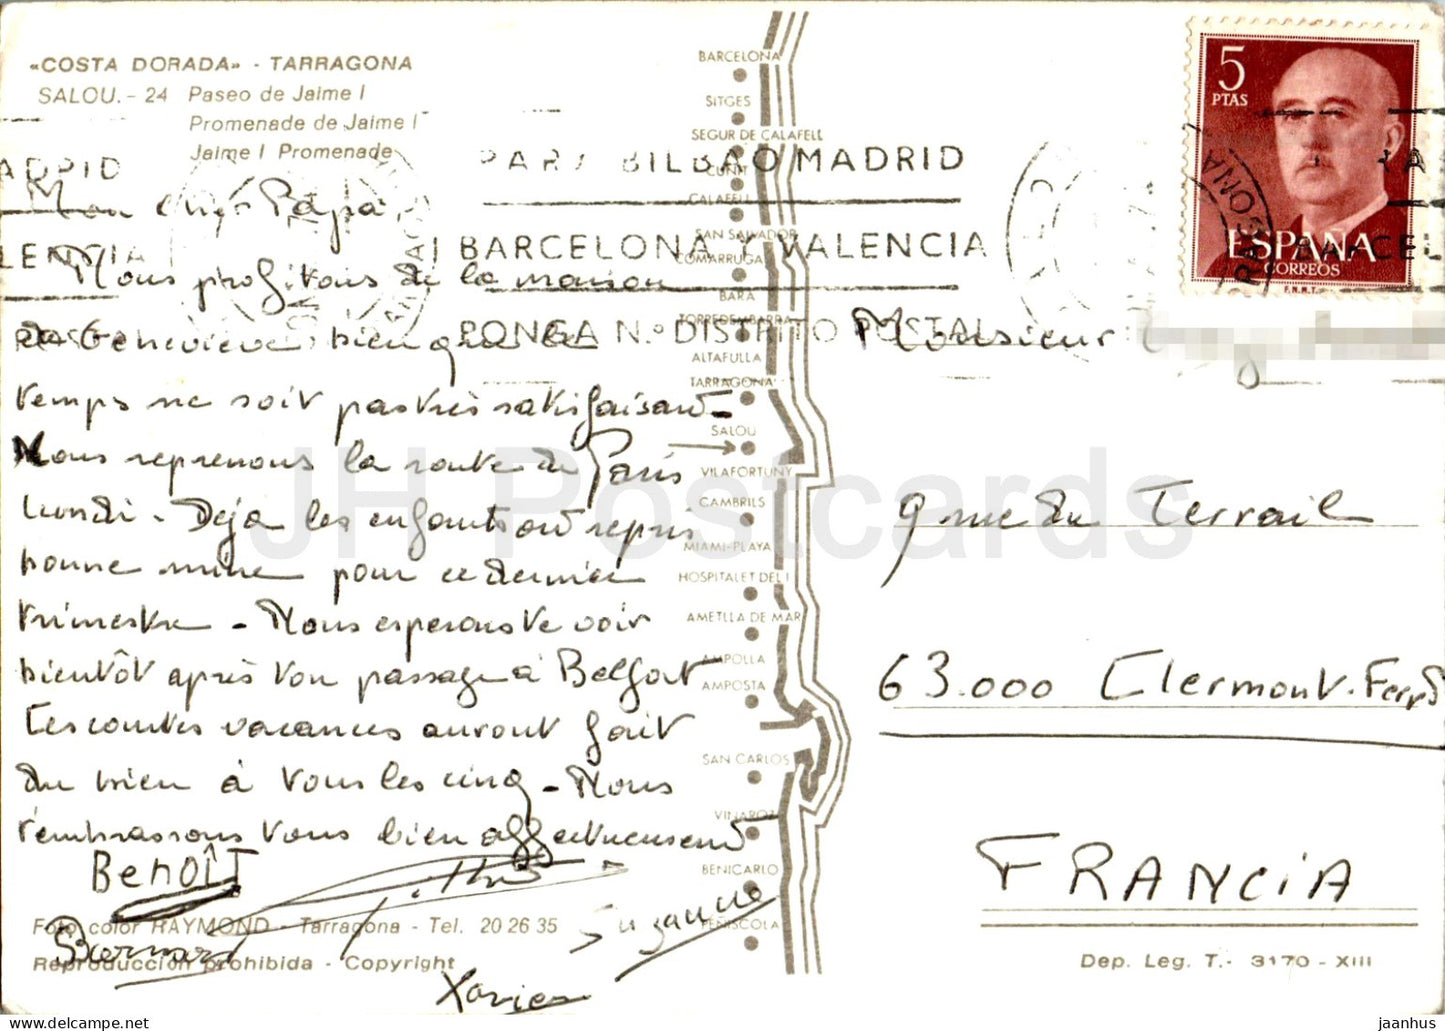 «COSTA DORADA» - TARRAGONA
SALOU. - 24 Paseo de Jaime I
Promenade de Jaime I
Jaime I Promenade
Mon cher Papa
Nous profitons de la maison
de Geneviève bien que le
temps ne soit pas très satisfaisant -
Nous reprenons la route de Paris
lundi - Déjà les enfants ont repris
bonne mine pour ce dernier
trimestre - Nous esperons te voir
bientôt après ton passage à Belfort
Ces contes vacances auront fait
du bien à tous les cinq - Nous
t'embrassons tous bien affectueusement
BENOÎT
Bernard
Suzanne
Xavier
Foto color RAYMOND - Tarragona - Tel. 20 26 35
Reproducción prohibida - Copyright
BARCELONA
SITGES
SEGUR DE CALAFELL
CUNIT
CALAFELL
SAN SALVADOR
COMARRUGA
BARA
TORREDEMBARRA
ALTAFULLA
TARRAGONA
SALOU
VILAFORTUNY
CAMBRILS
MIAMI-PLAYA
HOSPITALET DEL I
AMETLLA DE MAR
AMPOLLA
AMPOSTA
SAN CARLOS
VINAROZ
BENICARLO
PEÑISCOLA
PARA BILBAO MADRID
BARCELONA Y VALENCIA
PONGA N.º DISTRITO POSTAL
5
PTAS
ESPAÑA
CORREOS
F.N.M.T.
Monsieur
9 rue du Terrail
63.000 Clermont-Ferrd
FRANCIA
Dep. Leg. T. - 3170 - XIII
JH Postcards
jaanhus